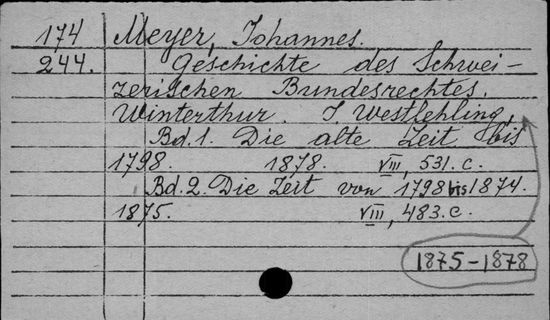 174 Meyer, Johannes.
244. Geschichte des Schwei-
zerischen Bundesrechtes.
Winterthur. J. Westfehling,
Bd. 1. Die alte Zeit bis
1798. 1878. VIII, 531. c.
Bd. 2. Die Zeit von 1798 bis 1874.
1875. VIII, 483. c.
1875-1878